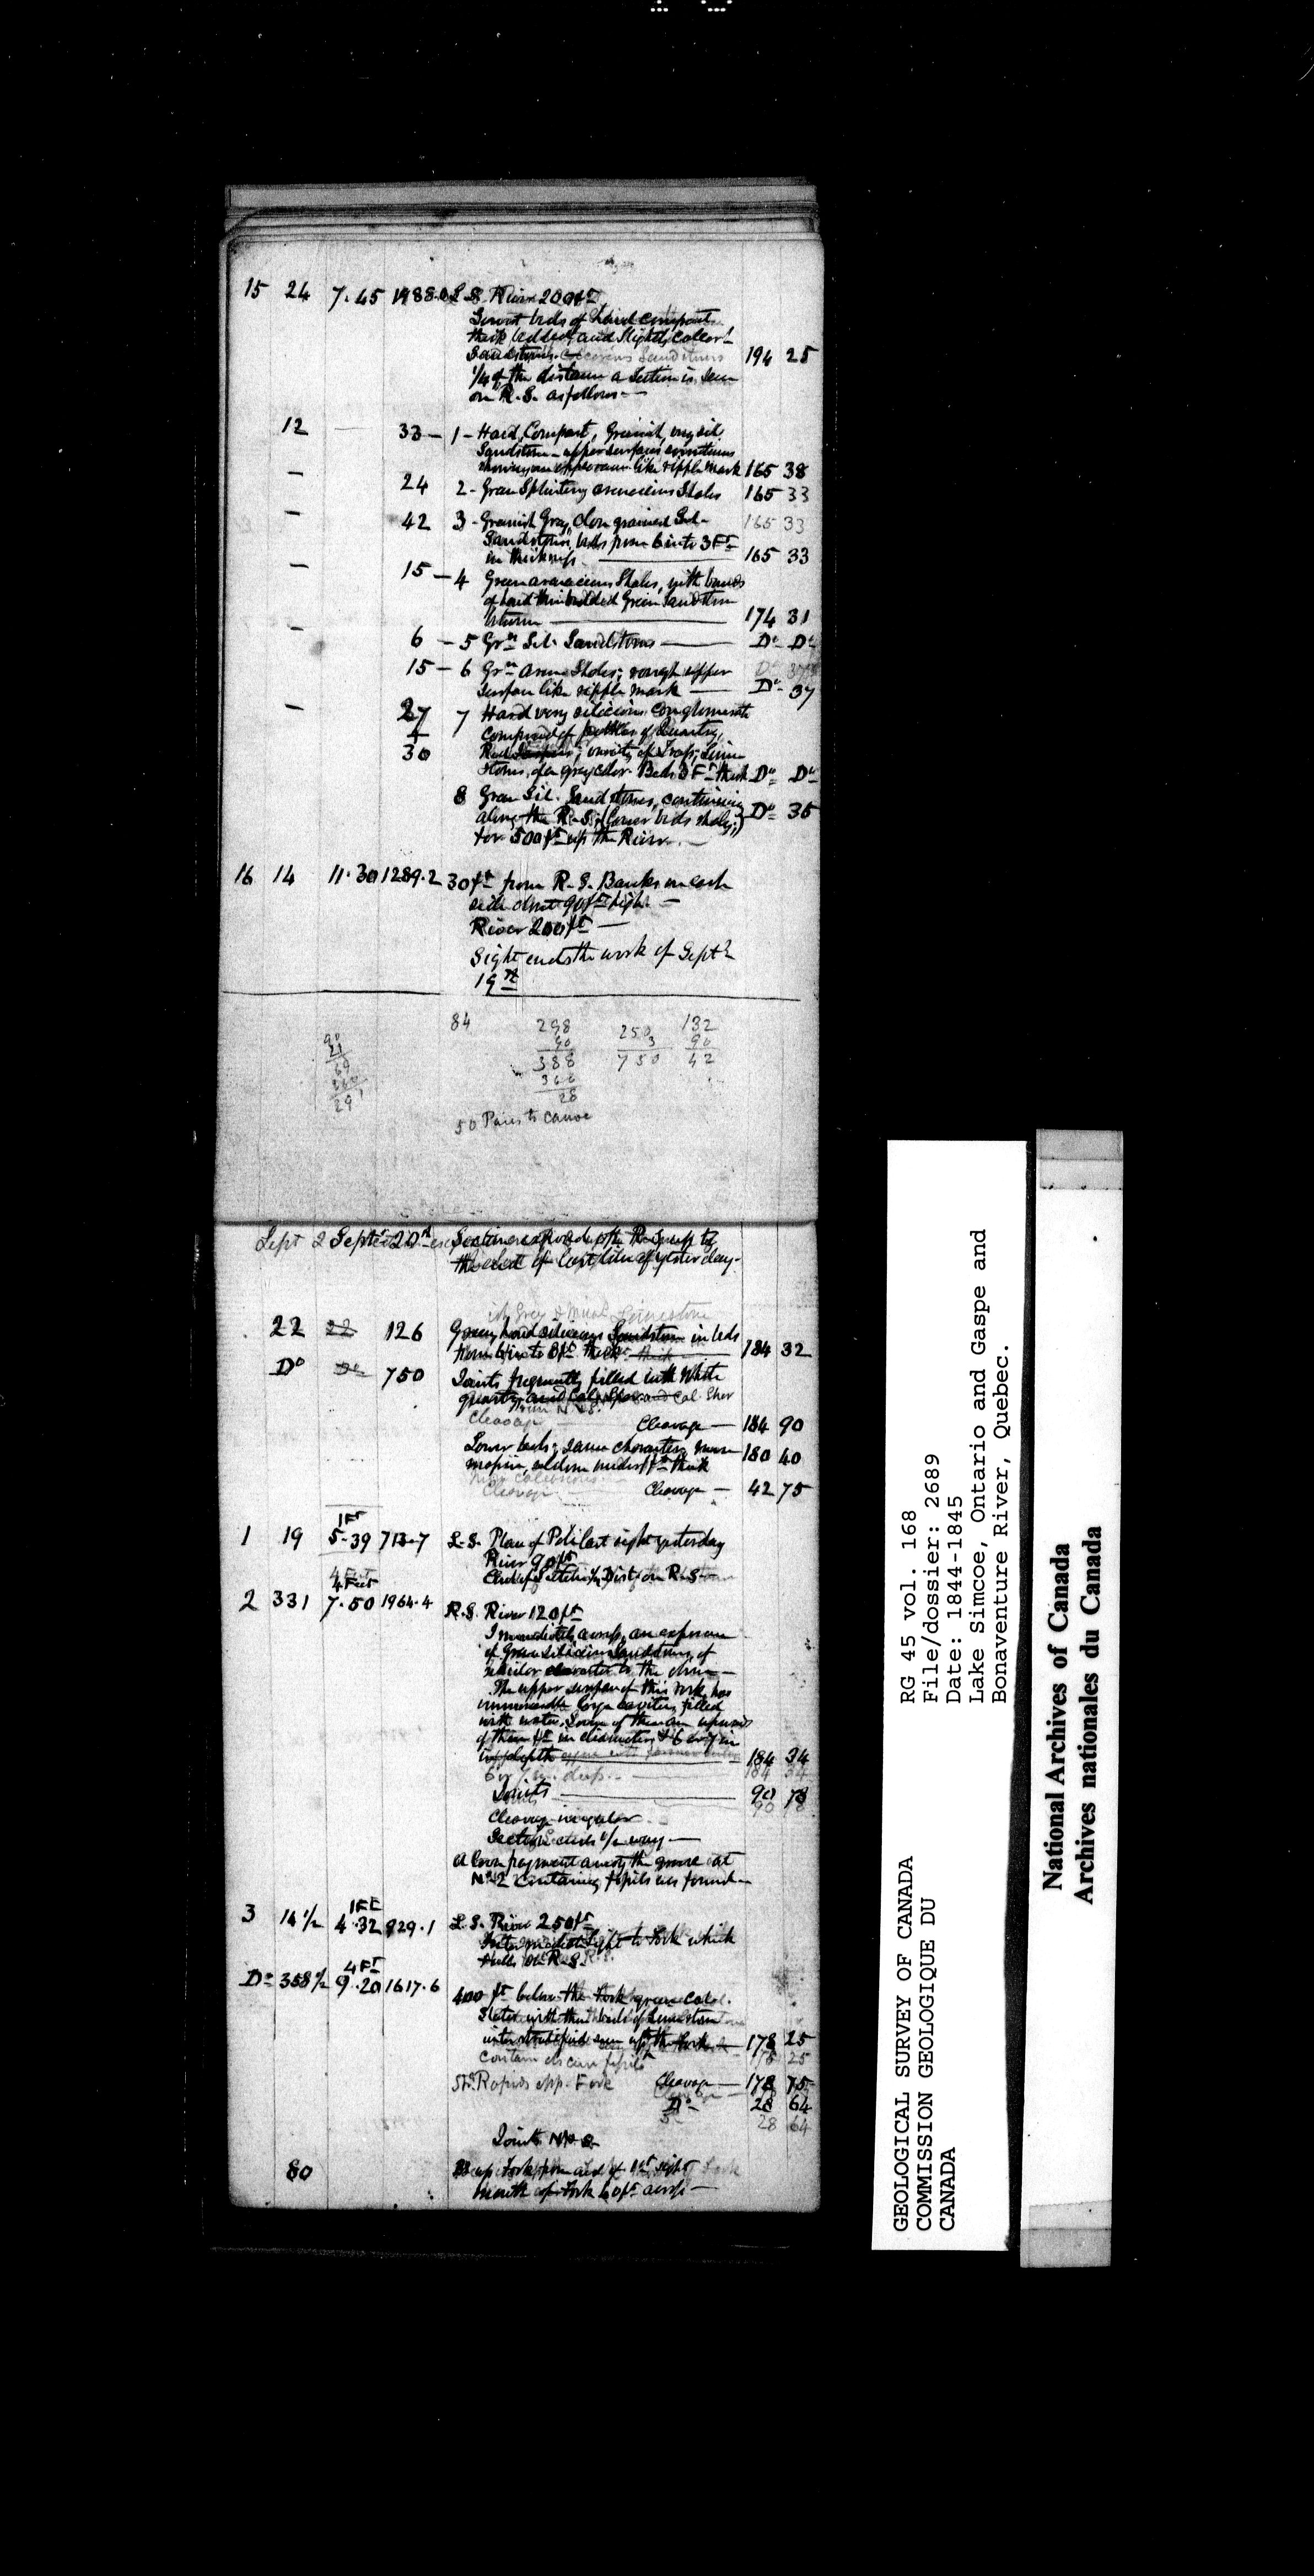 15 24 7.45 1988.0 L.S. River 200 ft
Sevl beds of hard compact
thick bedded and slightly calcar.
Sandstones. 194 25
1/4 of the distance a Section is seen
on R.S. as follows —
12 — 33 — 1 - Hard, Compact, Greenish, very sil.
Sandstone — upper surfaces
showing an appearance like ripple mark 165 38
— 24 2 - Green Splintery arenaceous Shales 165 33
— 42 3 - Greenish Gray, close grained Sil. 165 33
Sandstone, beds from 6 in to 3 Ft
in thickness. 165 33
— 15 — 4 Green arenaceous Shales, with bands
of hard thin bedded Green Sandstone
174 31
— 6 — 5 Grn Sil. Sandstones — Do Do
15 — 6 Grn Aren. Shales; rough upper
surface like ripple mark — Do 37
— 27 7 Hard very silicious conglomerate
composed of pebbles of Quartz,
30 Red Jaspers; variety of Traps; Lime
stones, of a grey color. Beds 3 Ft thick Do Do
8 Green Sil. Sandstones, continuing
along the R.S. (Lower beds shaly;) Do 35
for 500 ft up the River. —
16 14 11.30 1289.2 30 ft from R.S. Banks on each
side about 90 ft high. —
River 200 ft —
Sight ends the work of Septr
19th
84 298 250 132
90 3 90
388 750 42
360
28
90
21
69
360
291
50 Paces to Canoe
Sept 20th Section exposed on the R.S. up to
the end of last line of yesterday.
Grey Limestone
22 22 126 Green hard silicious Sandstone in beds
from 6 in to 3 ft thick 184 32
Do Do 750 Joints frequently filled with White
quartz and Calc. Spar
Cleavage — Cleavage — 184 90
Lower beds; same character, more
massive, seldom under 1 ft thick 180 40
Cleavage — Cleavage — 42 75
1 Ft
1 19 5.39 713.7 L.S. Place of Pole last sight yesterday
River 90 ft
End of Section 1/2 Dist; on R.S. —
4 Feet
2 331 7.50 1964.4 R.S. River 120 ft
Immediately across, an exposure
of Green Silicious Sandstones, of
similar character to the above —
The upper surface of this rock has
innumerable large cavities, filled
with water. Some of them are upwards
of three ft in diameter, & 6 or 7 in
in depth — 184 34
6 or 7 in. deep. — 184 34
Joints — 90 78
90 78
Cleavage irregular
Section ends 1/2 way —
A loose fragment among the gravel at
No 2 containing fossils was found —
1 Ft
3 14 1/2 4.32 929.1 L.S. River 250 ft
Intermediate Sight to Fork which
falls on R.S.
4 Ft
Do 358 1/2 9.20 1617.6 400 ft below the Fork green calc.
Slates with thin beds of Limestone
interstratified seen up to the fork — 178 25
contain obscure fossils 178 25
Str. Rapids opp. Fork Cleavage — 178 75
Do 28 64
28 64
Joints N & S
80 Up Fork from end of last sight
mouth of Fork 60 ft across —
RG 45 vol. 168
File/dossier: 2689
Date: 1844-1845
Lake Simcoe, Ontario and Gaspe and
Bonaventure River, Quebec.
GEOLOGICAL SURVEY OF CANADA
COMMISSION GEOLOGIQUE DU
CANADA
National Archives of Canada
Archives nationales du Canada